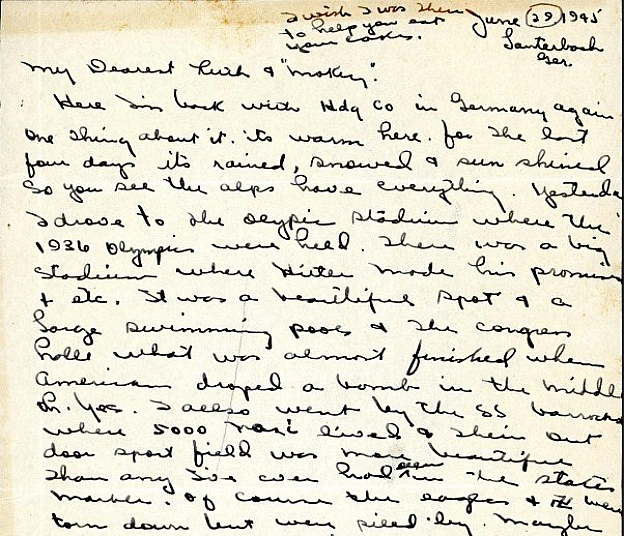 I wish I was there
to help you eat
your cakes.
June 29 1945
Lauterbach
Ger.
My Dearest Ruth & "Mokey".
Here I'm back with Hdq Co in Germany again
One thing about it. its warm here. for the last
four days its rained, snowed & sun shined
So you see the alps have everything Yesterda
I drove to the olypic stadium where the
1936 Olympics were held. There was a big
stadium where Hitler made his promises
& etc. It was a beautiful spot & a
large swimming pool & the congress
halle what was almost finished when
Americans droped a bomb in the middle
Oh. Yes. I allso went by the SS barracks
where 5000 nazi lived & their out
door sport field was more beautiful
than any I've ever had seen in the states
Marble. Of course the eagles & 卐 were
torn down but were piled by. Maybe